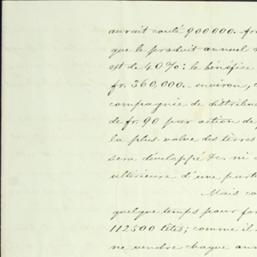 aurait couté 900 000. fr
que le produit annuel
est de 40%: le bénéfice
fr. 360,000. environ,
compagnie de distribu
de fr. 90 par action de
la plus value des terres
sera développé &c ni
ultérieure d'une part
Mais co
quelque temps pour for
112 500 têtes; comme il
ne vendre chaque ann